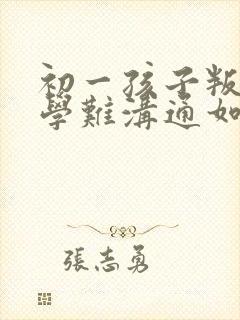 初一孩子叛
學難溝通如
張志勇